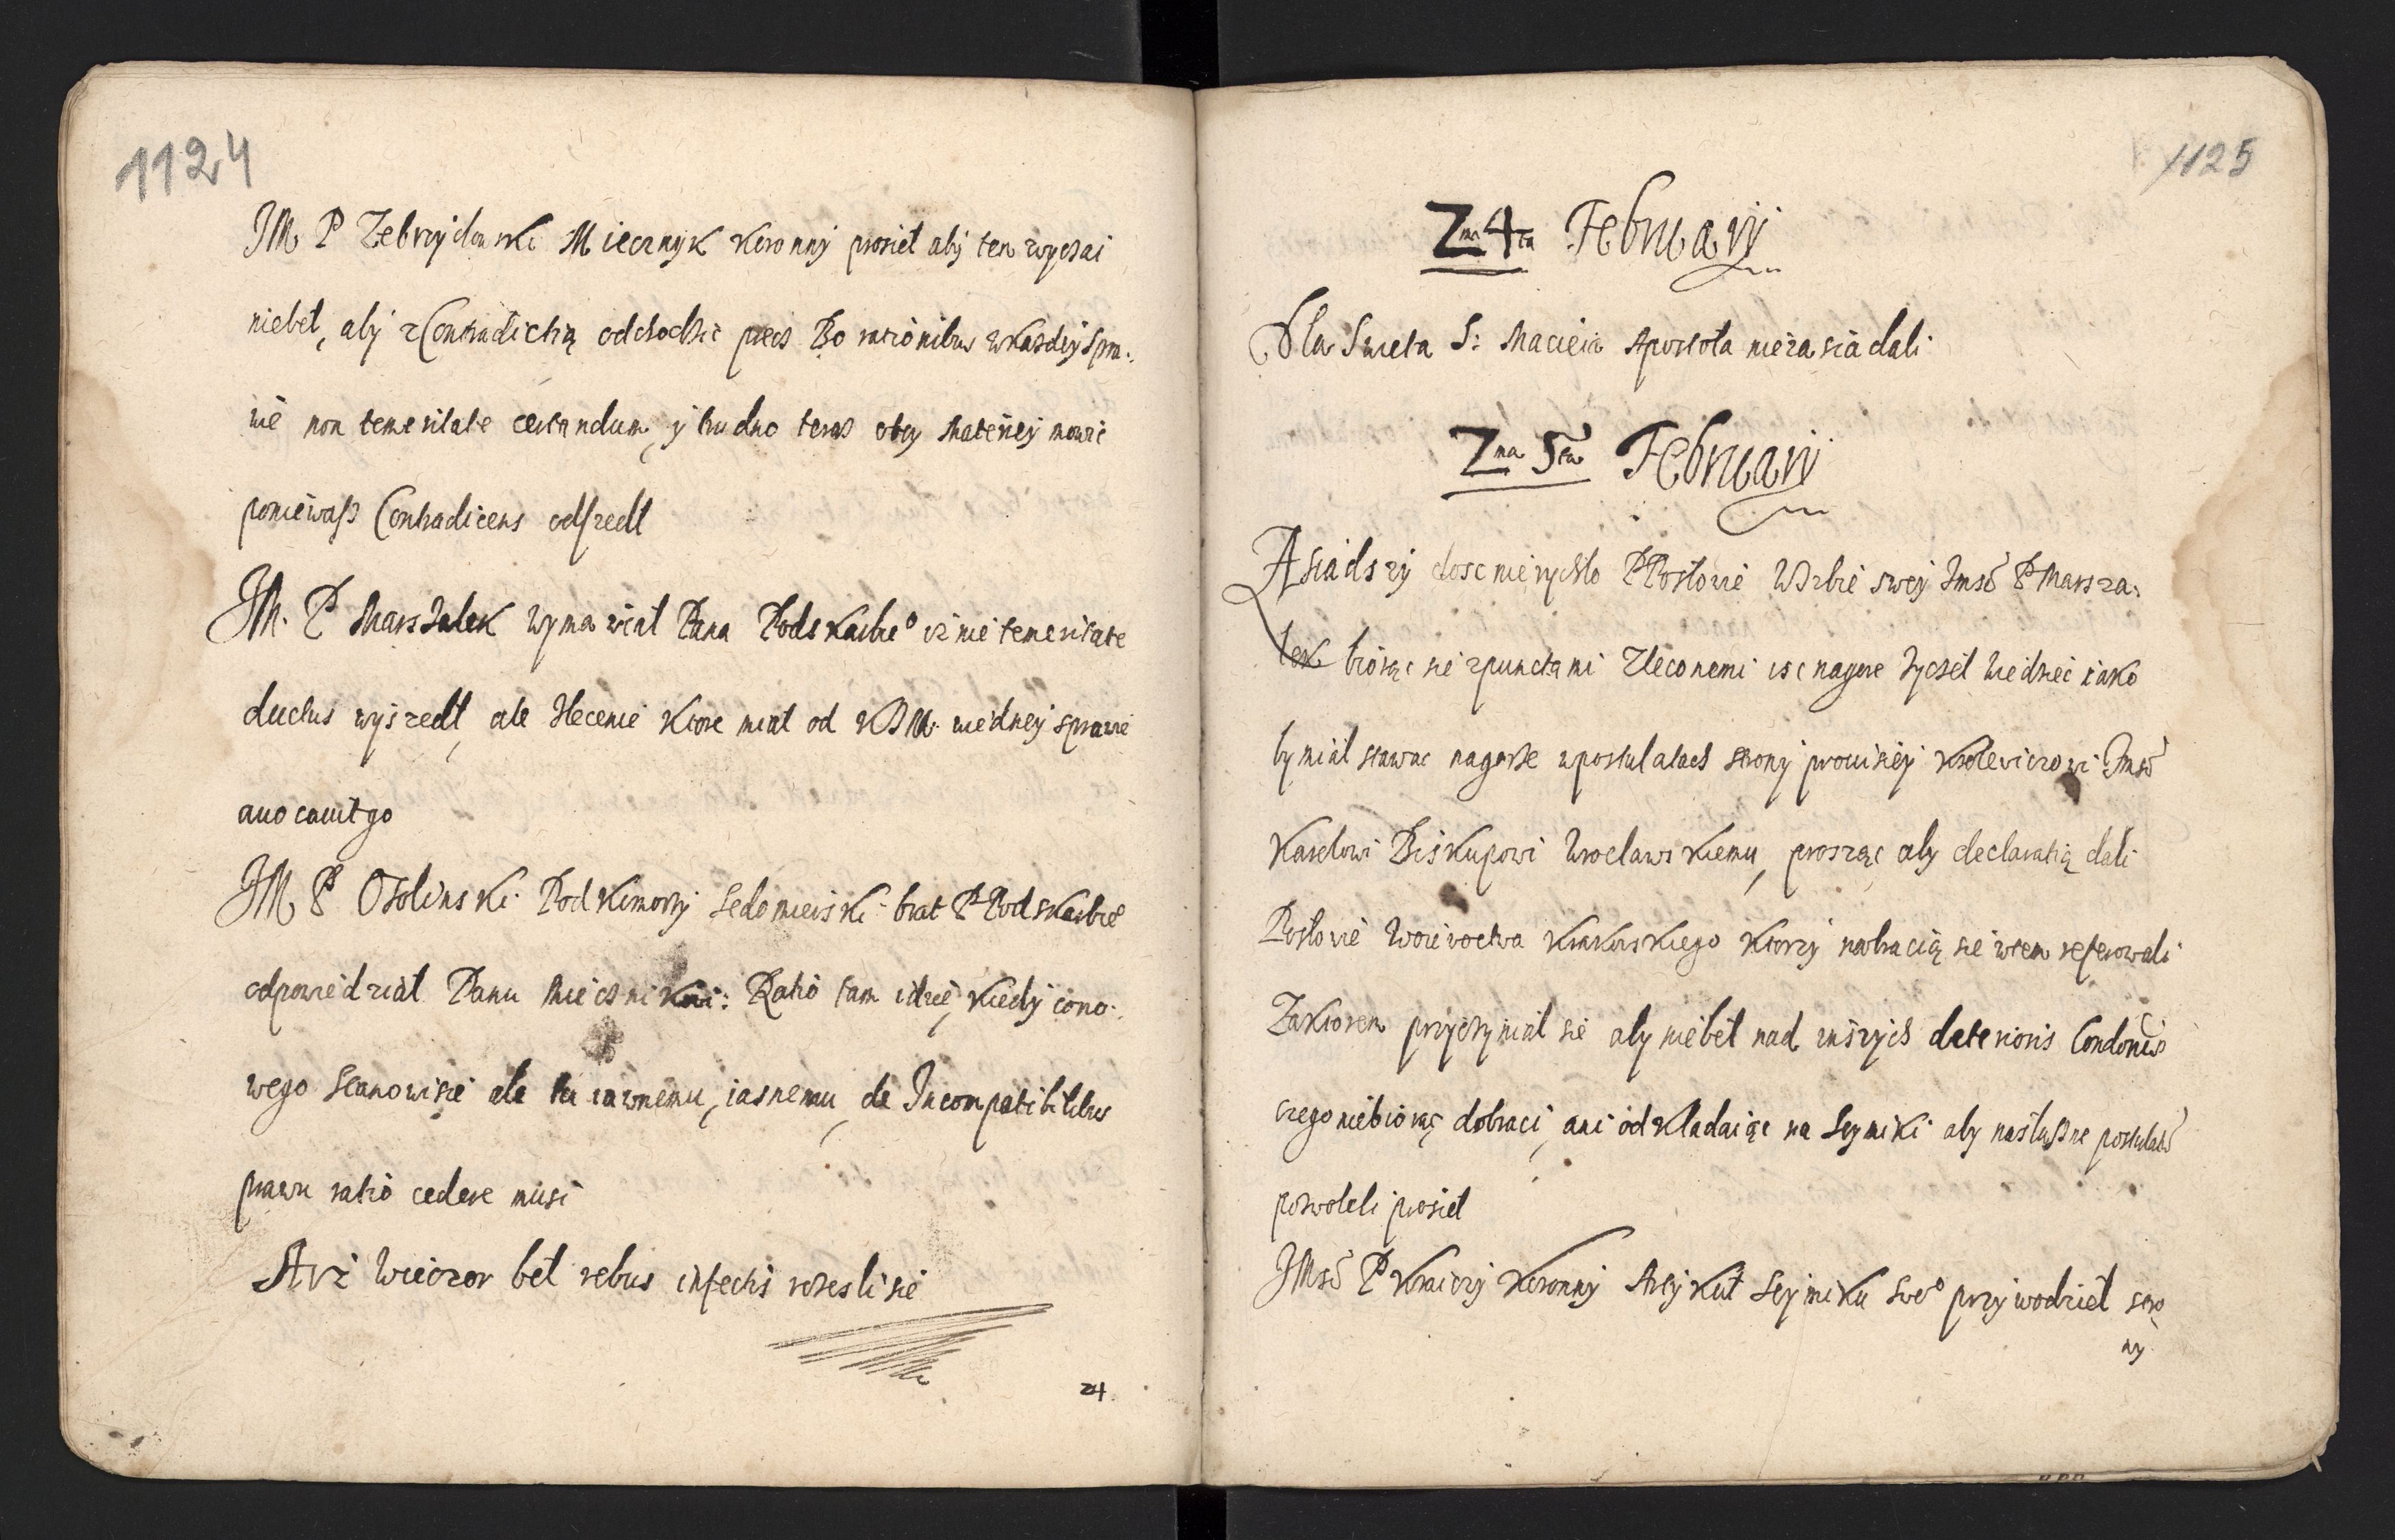 1124
JM P Zebrzydowski Miecznyk Koronny prosieł aby ten zwyczai
niebeł, aby zContradictią odchodzic precz Bo rationibus wkazdey spra:
wie non temeritate certandum, y trudno teraz otey Materiey mowic
poniewasz Contradicens odszedł
JM. P Marszałek wymawiał Pana Podskarbie° iz nie temeritate
ductus wyszedł, ale zlecenie ktore miał od KJM. wiedney sprawie
auocauit go
JM P Osolinski Podkomorzy Sedomierski brat P Podskarbie°
odpowiedział Panu Miecznikowi: Ratio tam idzie, kiedy cono:
wego stanowisie ale tu iawnemu, iasnemu, de Incompatibilibus
prawu ratio cedere musi
Asz wieczor beł rebus infectis rozeslisie
24
1125
Zma 4ta February
Dla Swieta S: Macieia Apostoła niezasiadali
Zma 5ta February
Asiadszy dosc nierychło PPosłowie WIzbie swey Jmsc P Marsza:
łek biorąc sie zpunctami zleconemi isc nagore zyczeł wiedziec iako
by miał stawac nagorze upostulatach strony prouisiey Krolewiczowi Jmsc
Karolowi Biskupowi Wrocławskiemu, prosząc aby declaratią dali
Posłowie Woiewoctwa Krakowskiego ktorzy nabracią sie wtem referowali
Zaktorem przyczyniał sie aby niebeł nad inszych deterioris Conditionis
czego niebiorąc dobraci, ani odkładaiąc na Seymiki aby nasłuszne postulata
pozwoleli prosieł
JMsc P Kraiczy Koronny Artykuł Seymiku swe° przywodzieł stro
ny